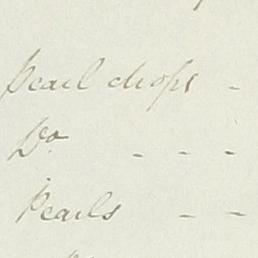 Pearl drops -
Do - - -
Pearls - -